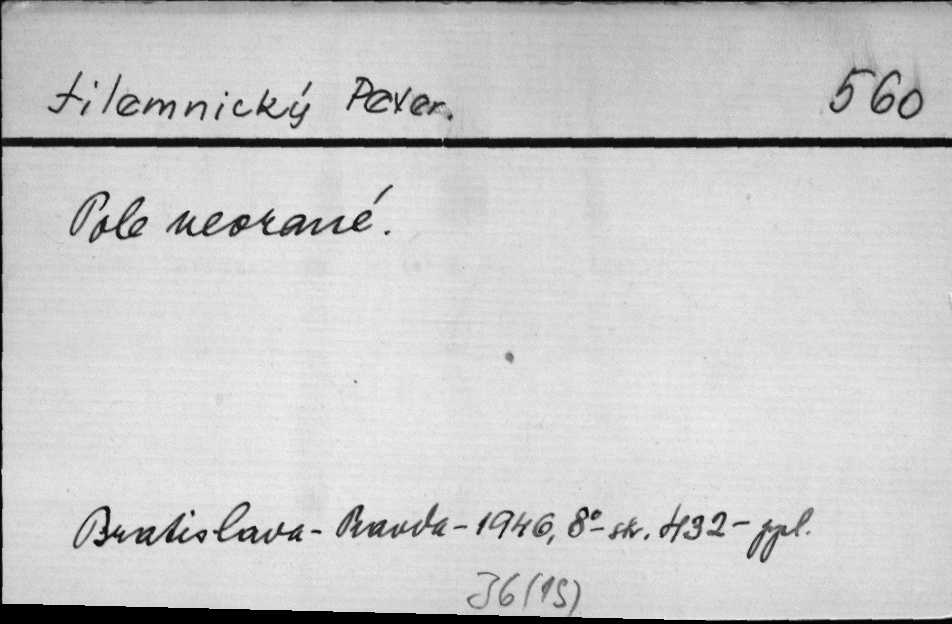 Jilemnický Peter. 560
Pole neorané.
Bratislava - Pravda - 1946, 8°- str. 432 - ppl.
J6(1S)